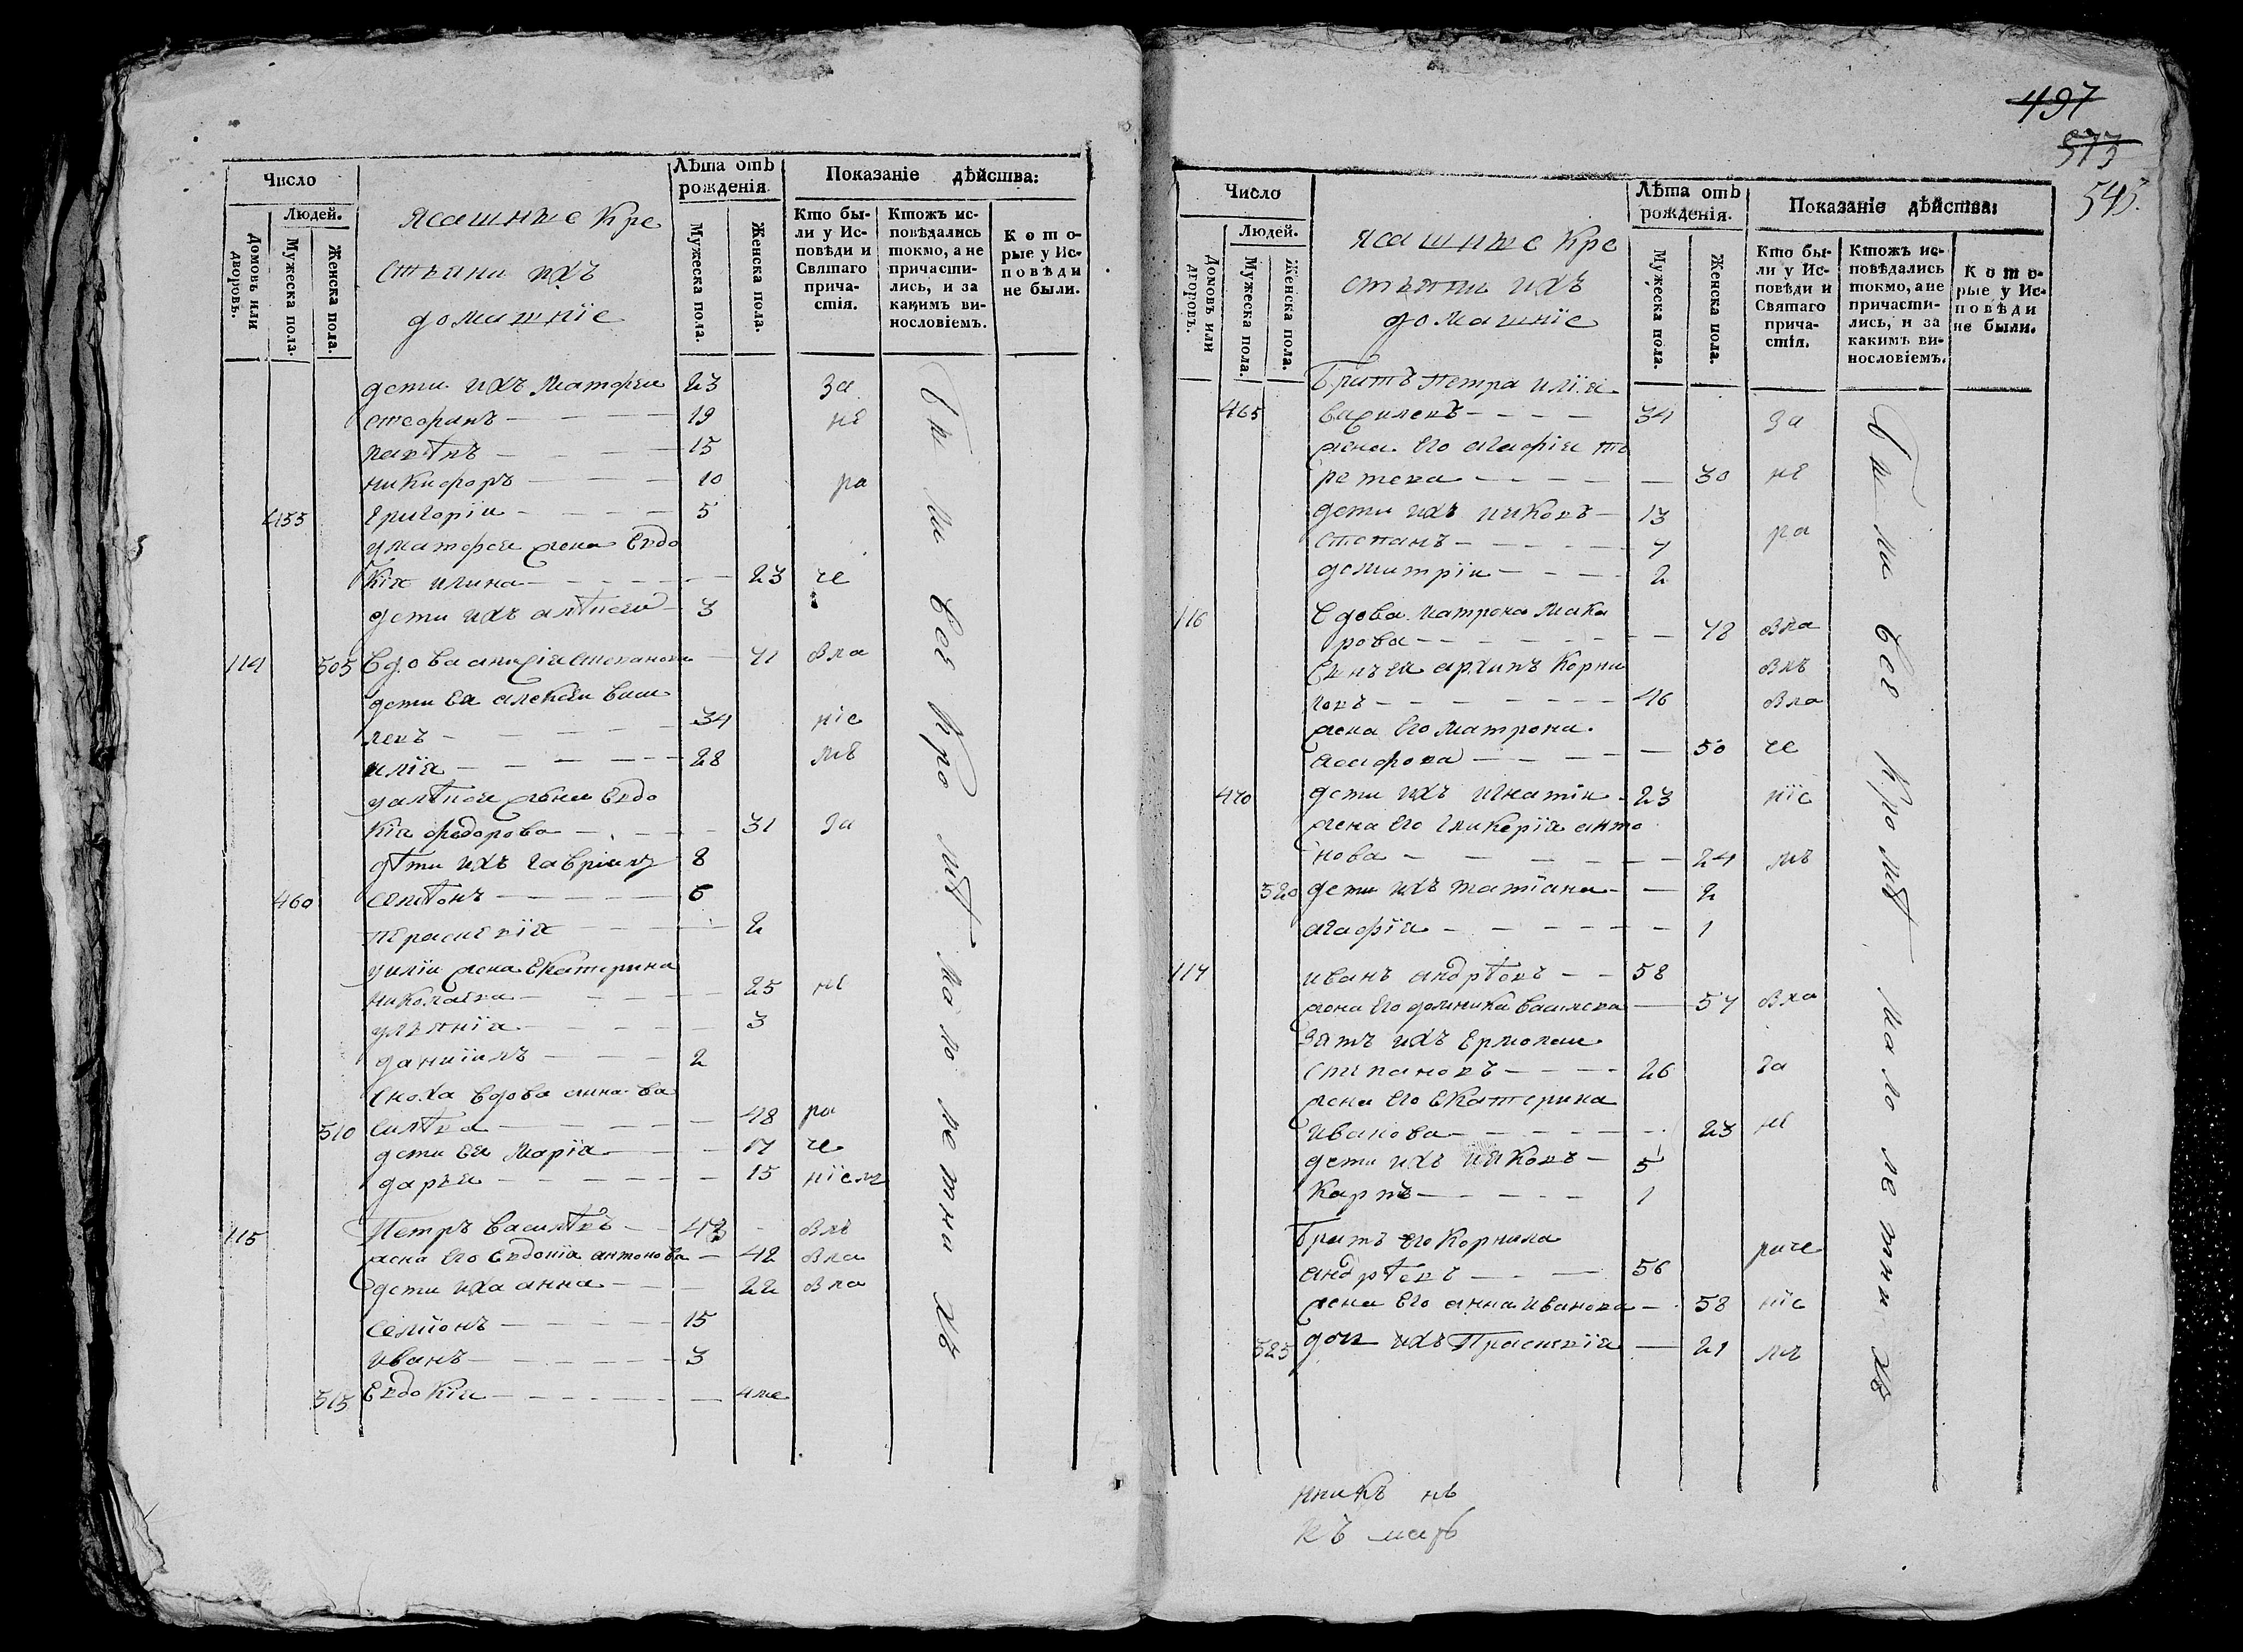 Число
Людей.
Домовъ или дворовъ.
Мужеска пола.
Женска пола.
Ясашные кре
стьяни ихъ
домашніе
Лѣта отъ рожденія.
Мужеска пола.
Женска пола.
Показаніе дѣйства:
Кто бы-
ли у Ис-
повѣди и
Святаго
прича-
стія.
Ктожъ ис-
повѣдались
токмо, а не
причасти-
лись, и за
какимъ ви-
нословіемъ.
Кото-
рые у Ис-
повѣди
не были.
дети ихъ матфеи 23 за
стефанъ 19 не
15
никифоръ 10 ра
455 григоріи 5
у матфея жена Евдо
кія илина 23 че
дети ихъ 3
114 505 Вдова анисія степанова 71 овла
дети ея алексеи васи
левъ 34 ніе
илія 28 мъ
жена Евдо
кія федорова 31 за
дѣти ихъ гавріилъ 8
460 семіонъ 6
параскевія 2
у иліи жена Екатерина
николаева 25 не
уліянія 3
даніилъ 2
сноха вдова анна ва
510 силѣва 48 ра
дети ея Марія 17 че
дарья 15 ніемъ
115 Петръ василѣвъ овлъ
жена его евдокія антонова 42 овла
дети иха анна 22 овла
семіонъ 15
иванъ 3
515 Евдокія 4 ме
все кроме малолетних
497
573
545.
Число
Людей.
Домовъ или дворовъ.
Мужеска пола.
Женска пола.
Ясашные кре
стьяни ихъ
домашніе
Лѣта отъ рожденія.
Мужеска пола.
Женска пола.
Показаніе дѣйства:
Кто бы-
ли у Ис-
повѣди и
Святаго
прича-
стія.
Ктожъ ис-
повѣдались
токмо, а не
причасти-
лись, и за
какимъ ви-
нословіемъ.
Кото-
рые у Ис-
повѣди
не были.
братъ петра илія
465 василевъ 34 за
жена его агафія те
рентева 30 не
дети ихъ 13
степанъ 7 ра
демитріи 2
116 Вдова матрона мака
рова 78 овла
сынъ ея архипъ корни
ловъ 46 овла
жена его матрона
50 че
470 дети ихъ игнатіи 23 ніе
жена его гликерія анто
нова 24 мъ
520 дети ихъ татіана 2
агафія 1
117 иванъ андрѣевъ 58
жена его домника василева 57 овла
зять ихъ ермолаи
степановъ 26 за
жена его екатерина
иванова 23 не
дети ихъ 5
карпъ 1
братъ его корнила
андрѣевъ 56 раче
жена его анна иванова 58 ніе
525 доч ихъ Праскевія 21 мъ
все кроме малолетних